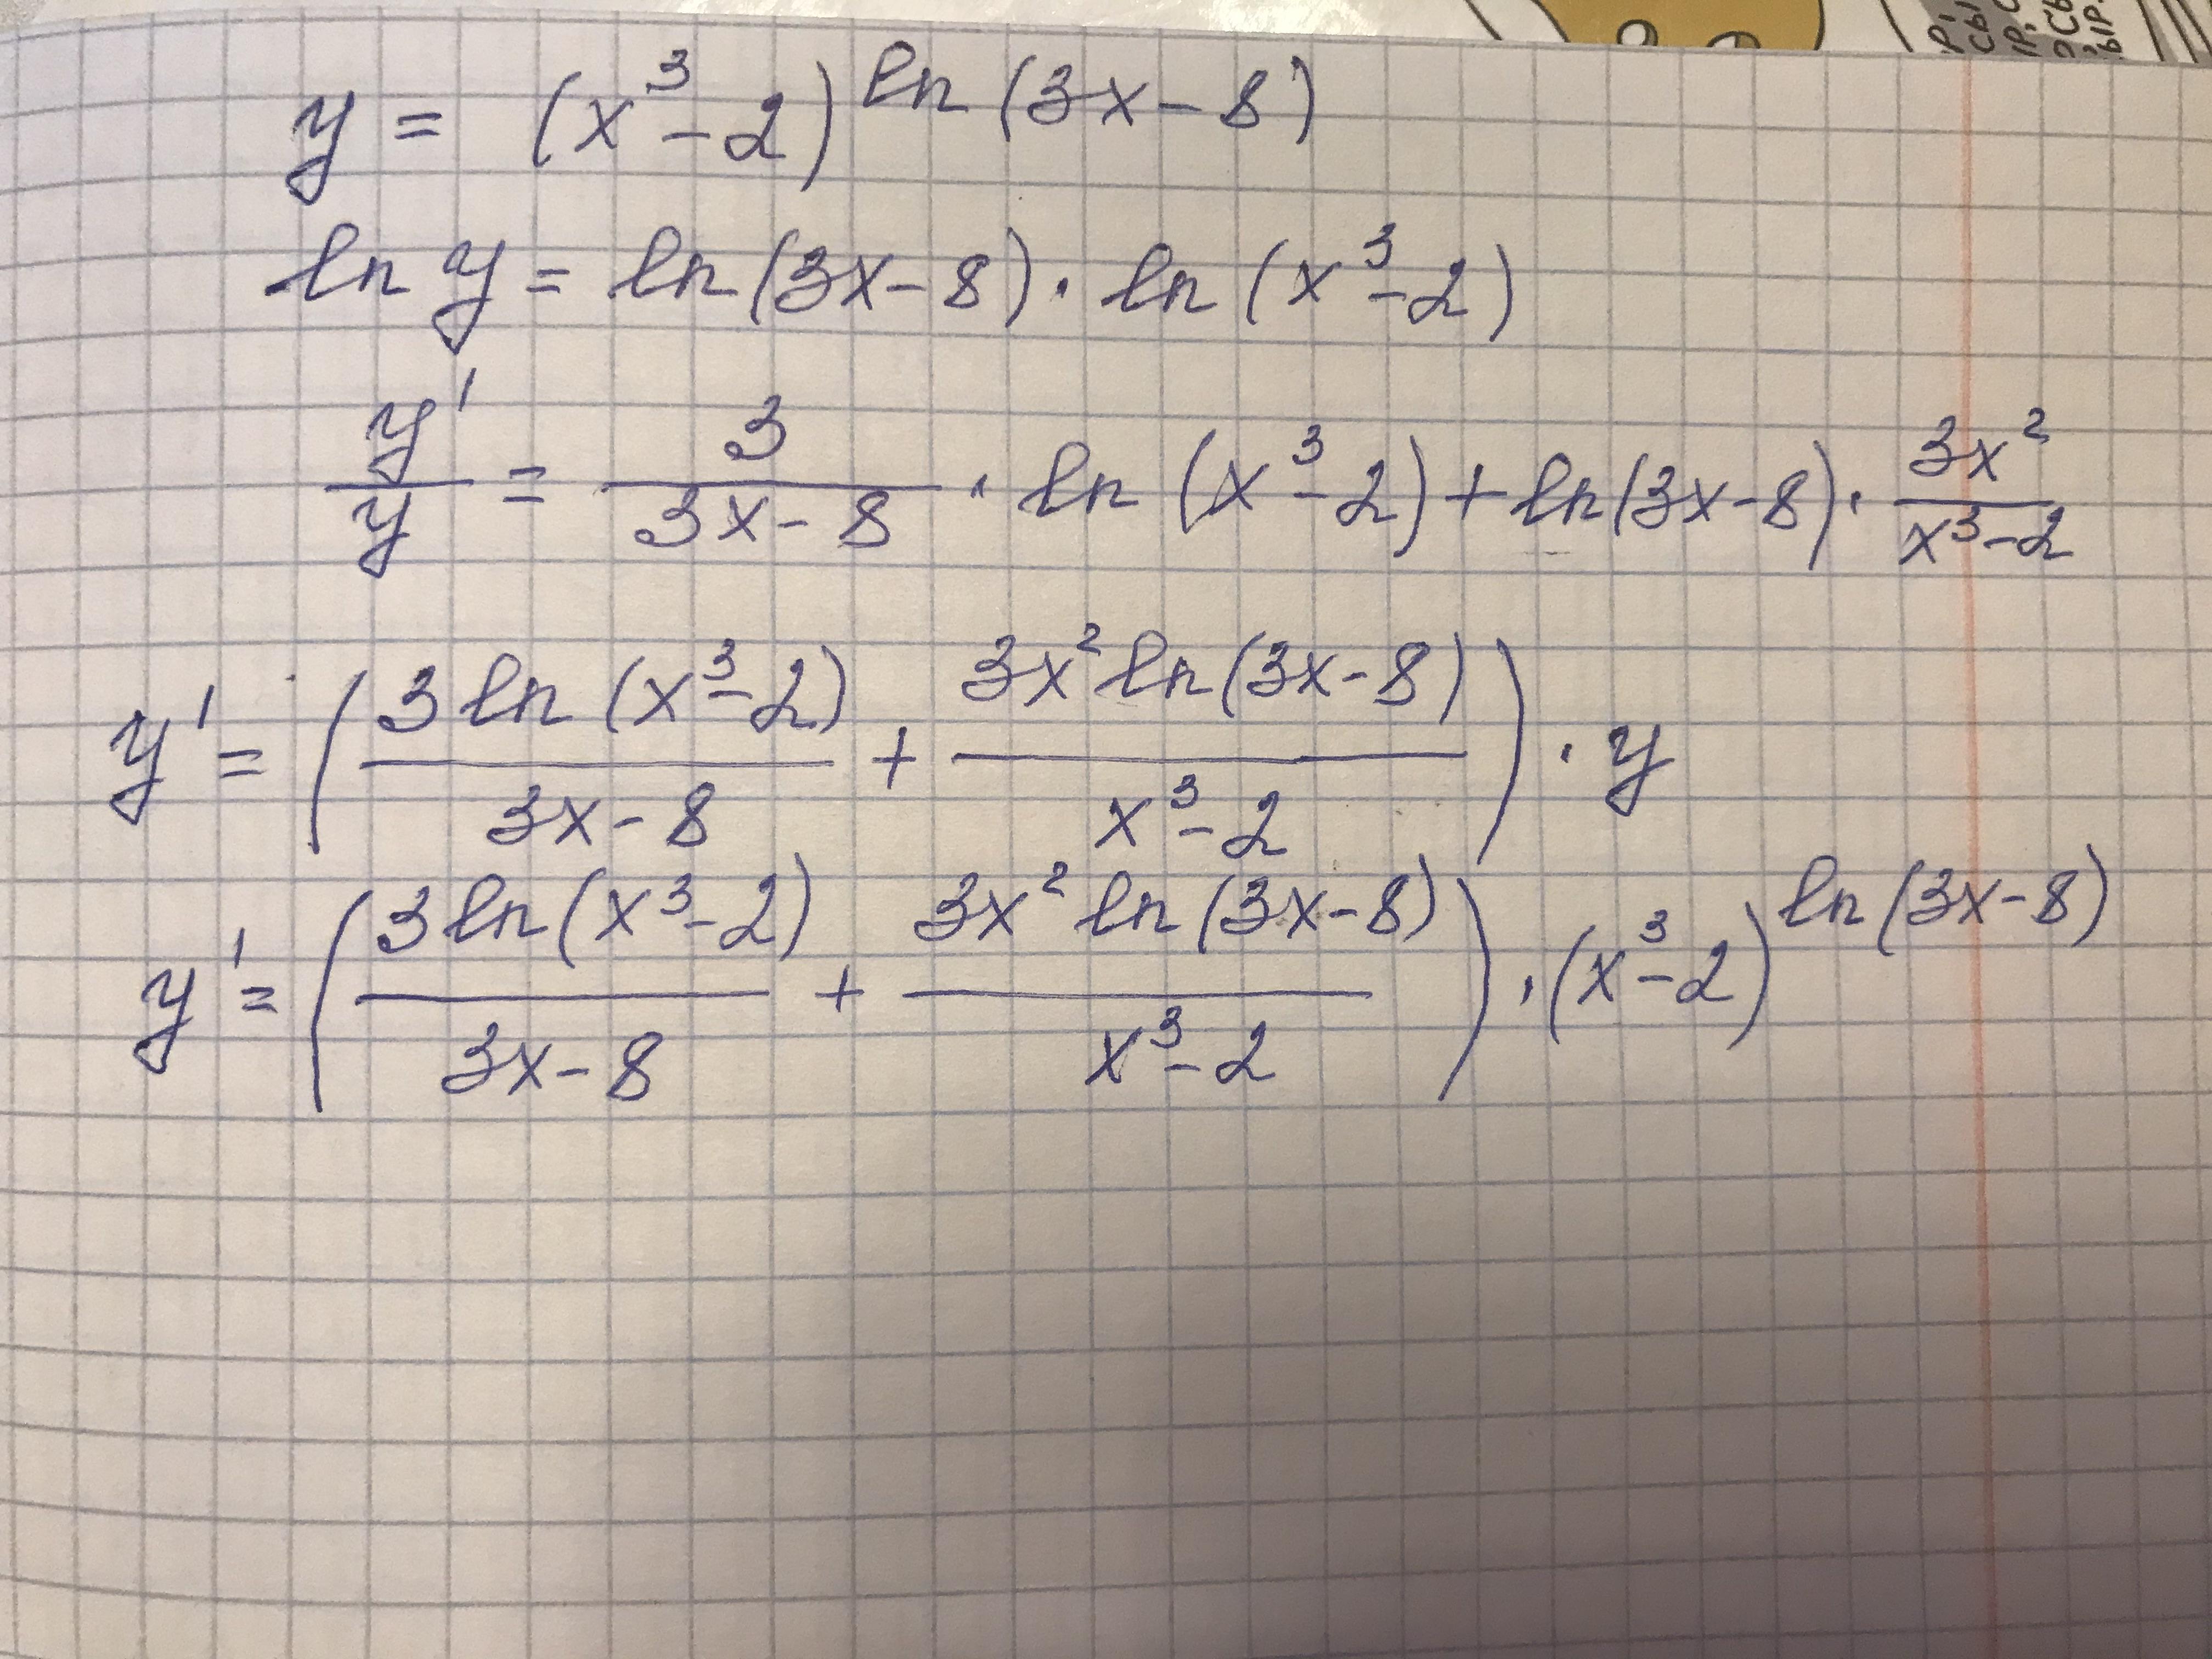 y = (x³-2)^ln(3x-8)
ln y = ln(3x-8) · ln(x³-2)
y'/y = 3/(3x-8) · ln(x³-2) + ln(3x-8) · 3x²/(x³-2)
y' = (3 ln(x³-2)/(3x-8) + 3x² ln(3x-8)/(x³-2)) · y
y' = (3 ln(x³-2)/(3x-8) + 3x² ln(3x-8)/(x³-2)) · (x³-2)^ln(3x-8)